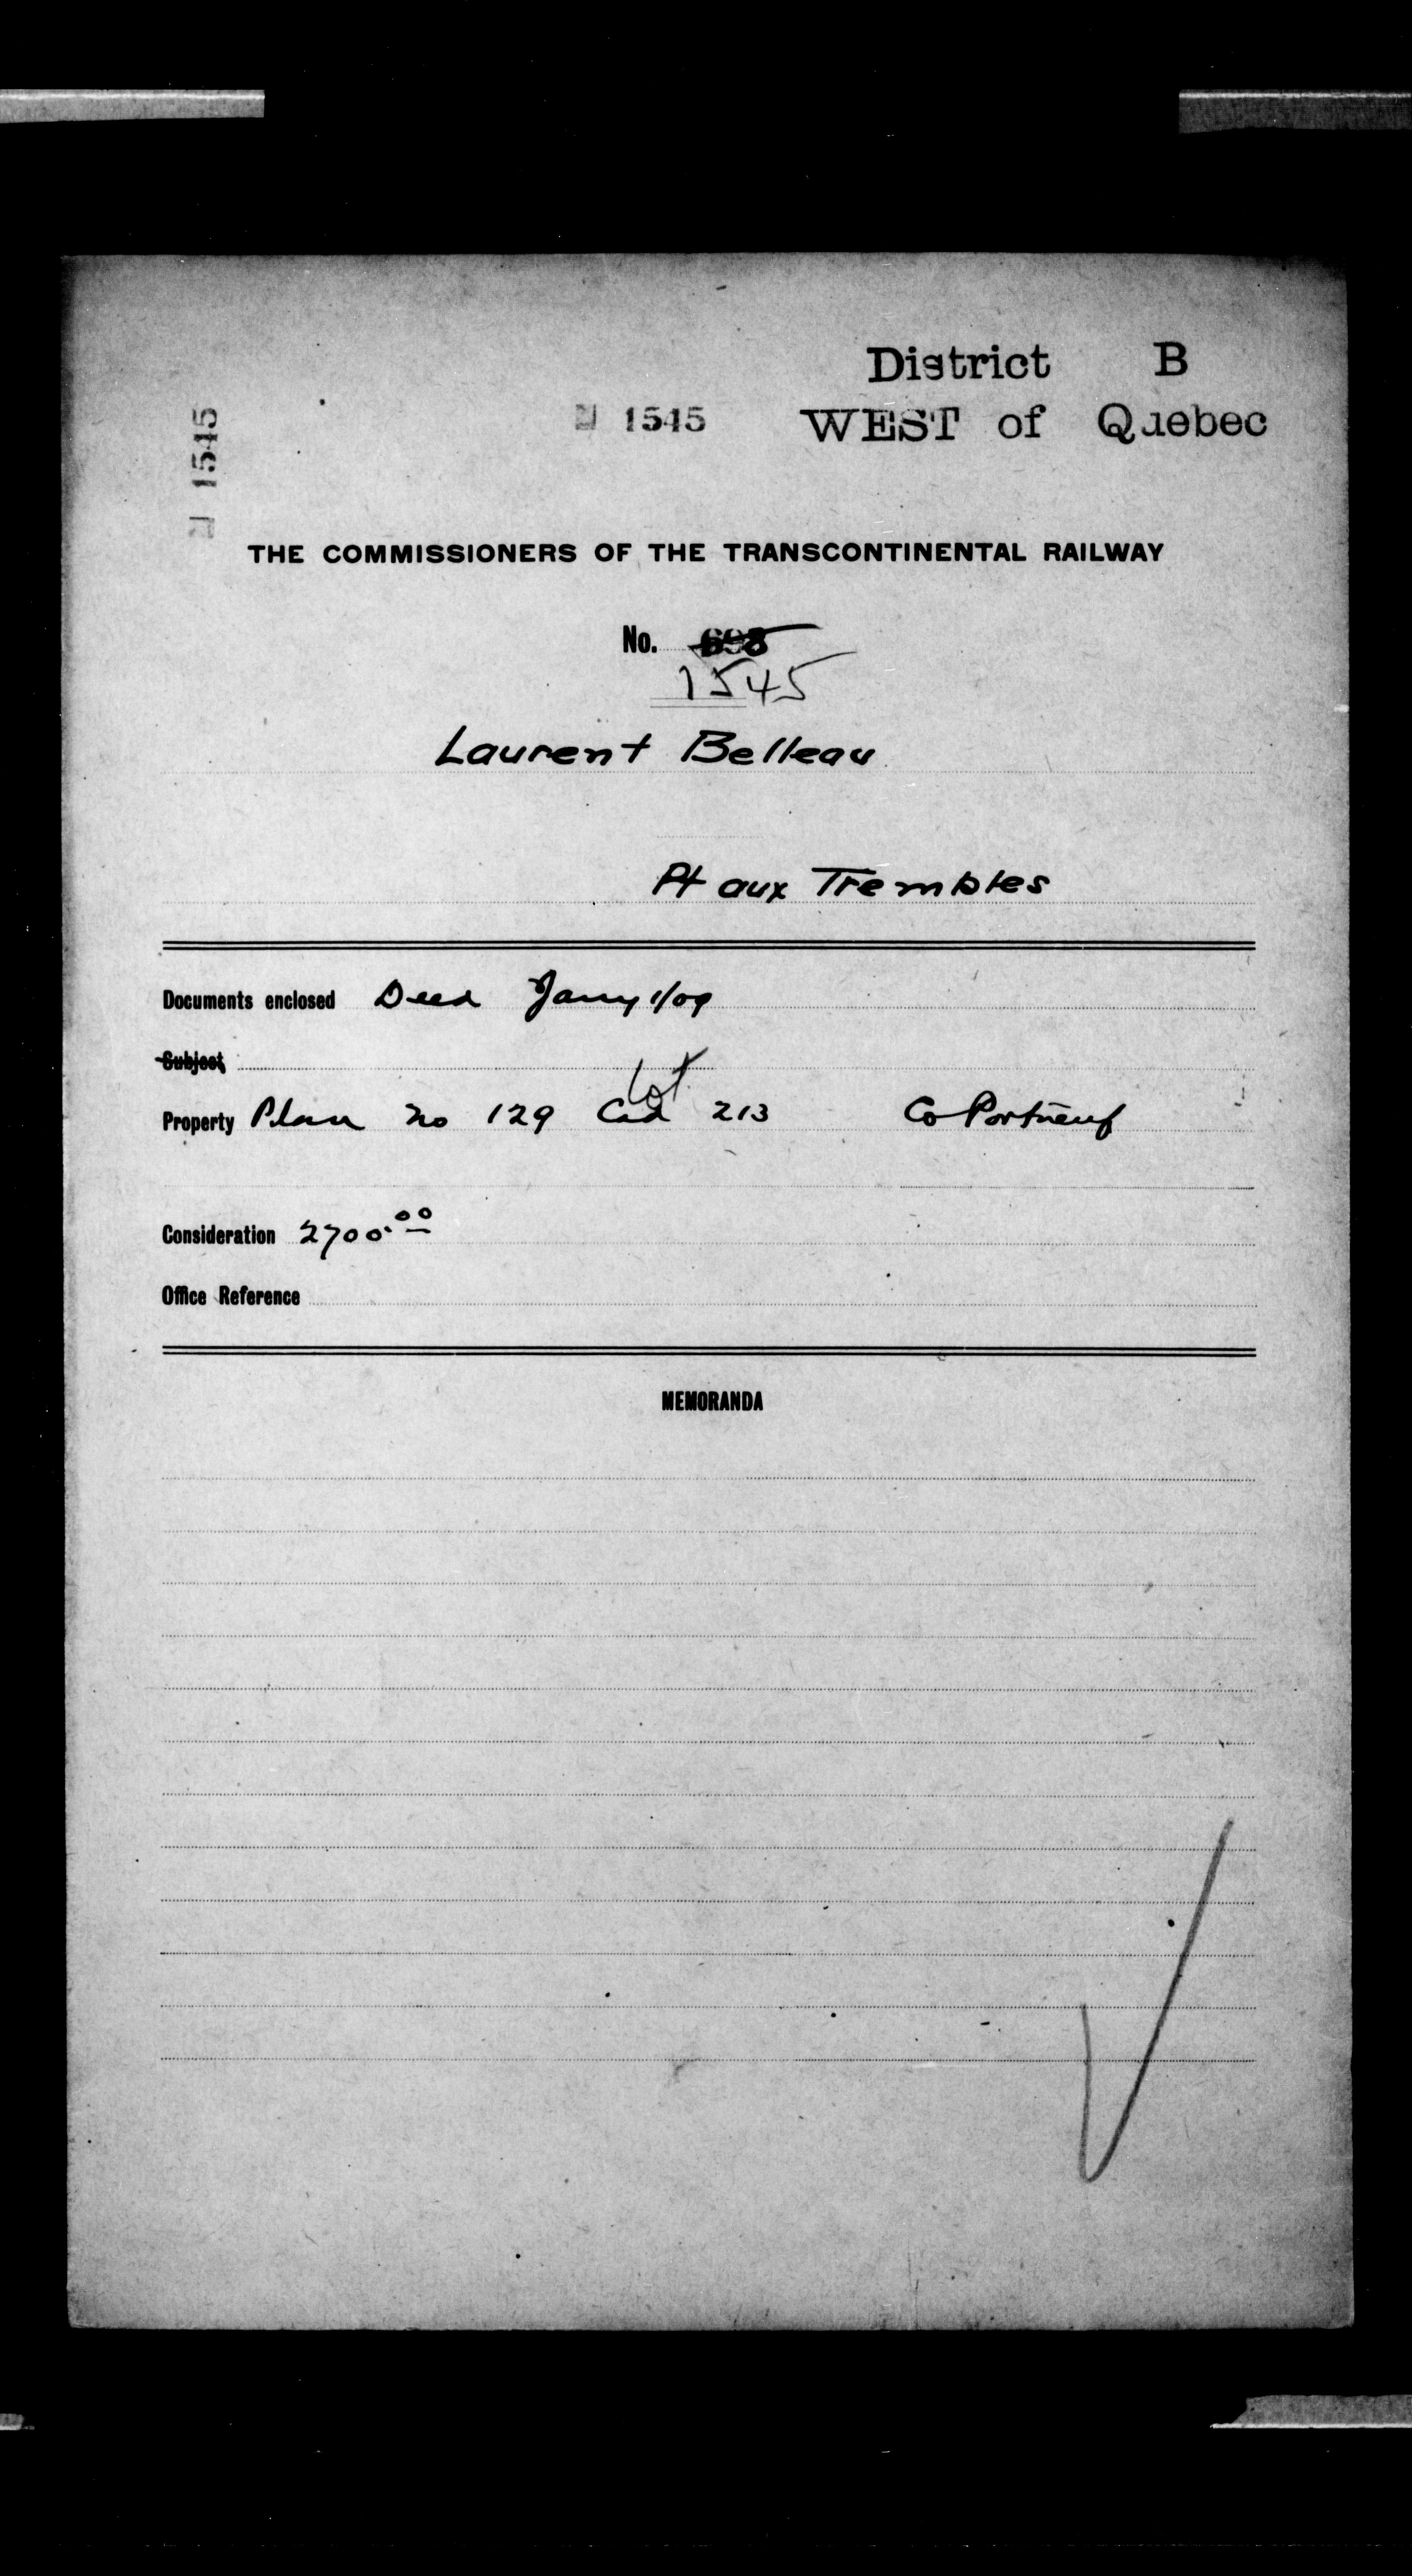 District B
1545 WEST of Quebec
1545
THE COMMISSIONERS OF THE TRANSCONTINENTAL RAILWAY
No.
1545
Laurent Belleau
Pt aux Trembles
Documents enclosed Deed Jany 1/09
Subject
Lot
Property Plan no 129 Cad 213 Co Portneuf
Consideration 2700.00
Office Reference
MEMORANDA